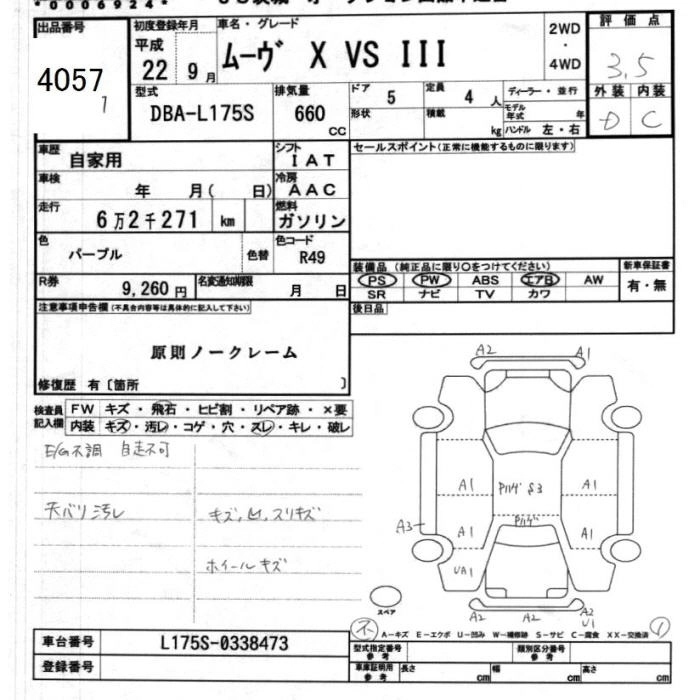 *0006924*
出品番号
4057
1
初度登録年月
平成
22 9月
車名・グレード
ムーヴ X VS III
2WD
・
4WD
評価点
3.5
型式
DBA-L175S
排気量
660
CC
ドア
5
定員
4人
形状
積載
kg
ディーラー・並行
モデル年式 年
ハンドル 左・右
外装 内装
D C
車歴
自家用
シフト
IAT
セールスポイント(正常に機能するものに限ります)
車検
年 月( 日)
冷房
AAC
走行
6万2千271 km
燃料
ガソリン
色
パープル
色替
色コード
R49
装備品 (純正品に限り○をつけてください)
新車保証書
PS PW ABS エアB AW
有・無
SR ナビ TV カワ
R券
9,260円
名変通知期限
月 日
後日品
注意事項申告欄(不具合内容等は具体的に記入して下さい)
原則ノークレーム
修復歴 有〔箇所 〕
検査員記入欄
FW キズ・飛石・ヒビ割・リペア跡・×要
内装 キズ・汚レ・コゲ・穴・スレ・キレ・破レ
E/G不調 自走不可
天バリ汚レ
キズ,凹,スリキズ
ホイールキズ
A2 A1
A1 Pハゲ S3 A1
Pハゲ
A3 A1 A1
UA1
スペア
A2 A2 A2
U1
A-キズ E-エクボ U-凹み W-補修跡 S-サビ C-腐食 XX-交換済
車台番号
L175S-0338473
登録番号
型式指定番号 参考
類別区分番号 参考
車庫証明用 参考
長さ cm
幅 cm
高さ cm